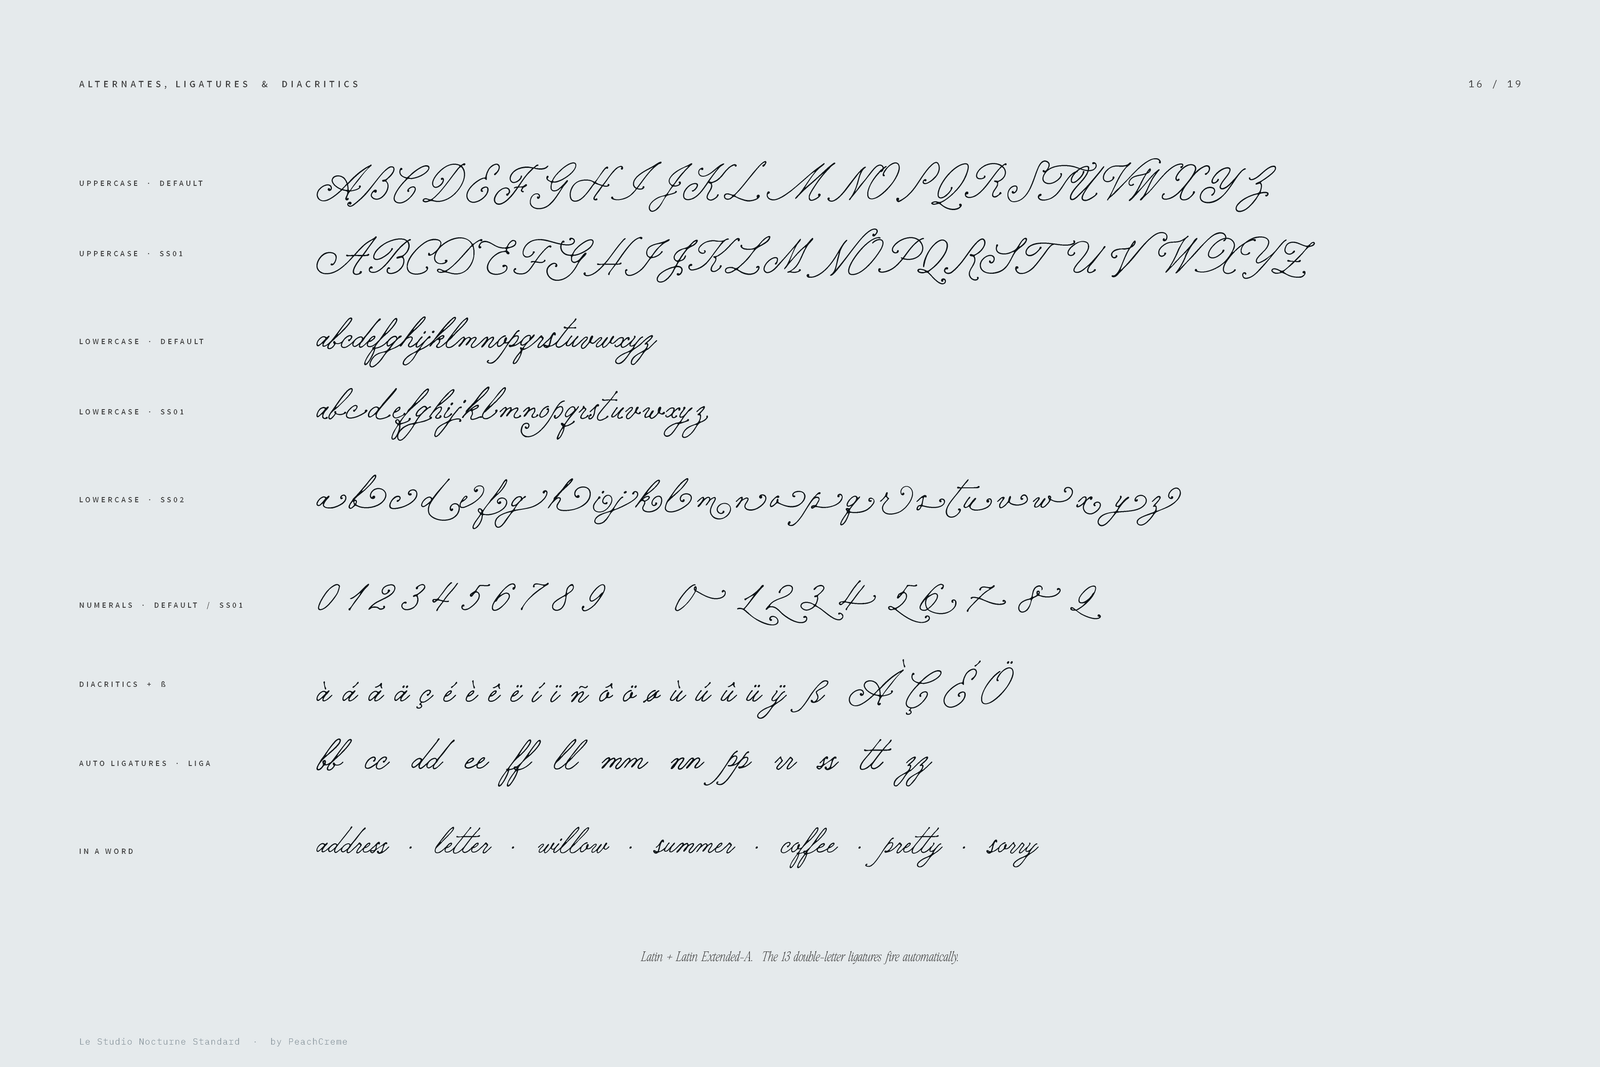 ALTERNATES, LIGATURES & DIACRITICS
16 / 19
UPPERCASE · DEFAULT
ABCDEFGHIJKLMNOPQRSTUVWXYZ
UPPERCASE · SS01
ABCDEFGHIJKLMNOPQRSTUVWXYZ
LOWERCASE · DEFAULT
abcdefghijklmnopqrstuvwxyz
LOWERCASE · SS01
abcdefghijklmnopqrstuvwxyz
LOWERCASE · SS02
abcdefghijklmnopqrstuvwxyz
NUMERALS · DEFAULT / SS01
0123456789 0123456789
DIACRITICS + ß
à á â ä ç é è ê ë í ï ñ ô ö ø ù ú û ü ÿ ß À Ç É Ö
AUTO LIGATURES · LIGA
bb cc dd ee ff ll mm nn pp rr ss tt zz
IN A WORD
address · letter · willow · summer · coffee · pretty · sorry
Latin + Latin Extended-A. The 13 double-letter ligatures fire automatically.
Le Studio Nocturne Standard · by PeachCreme